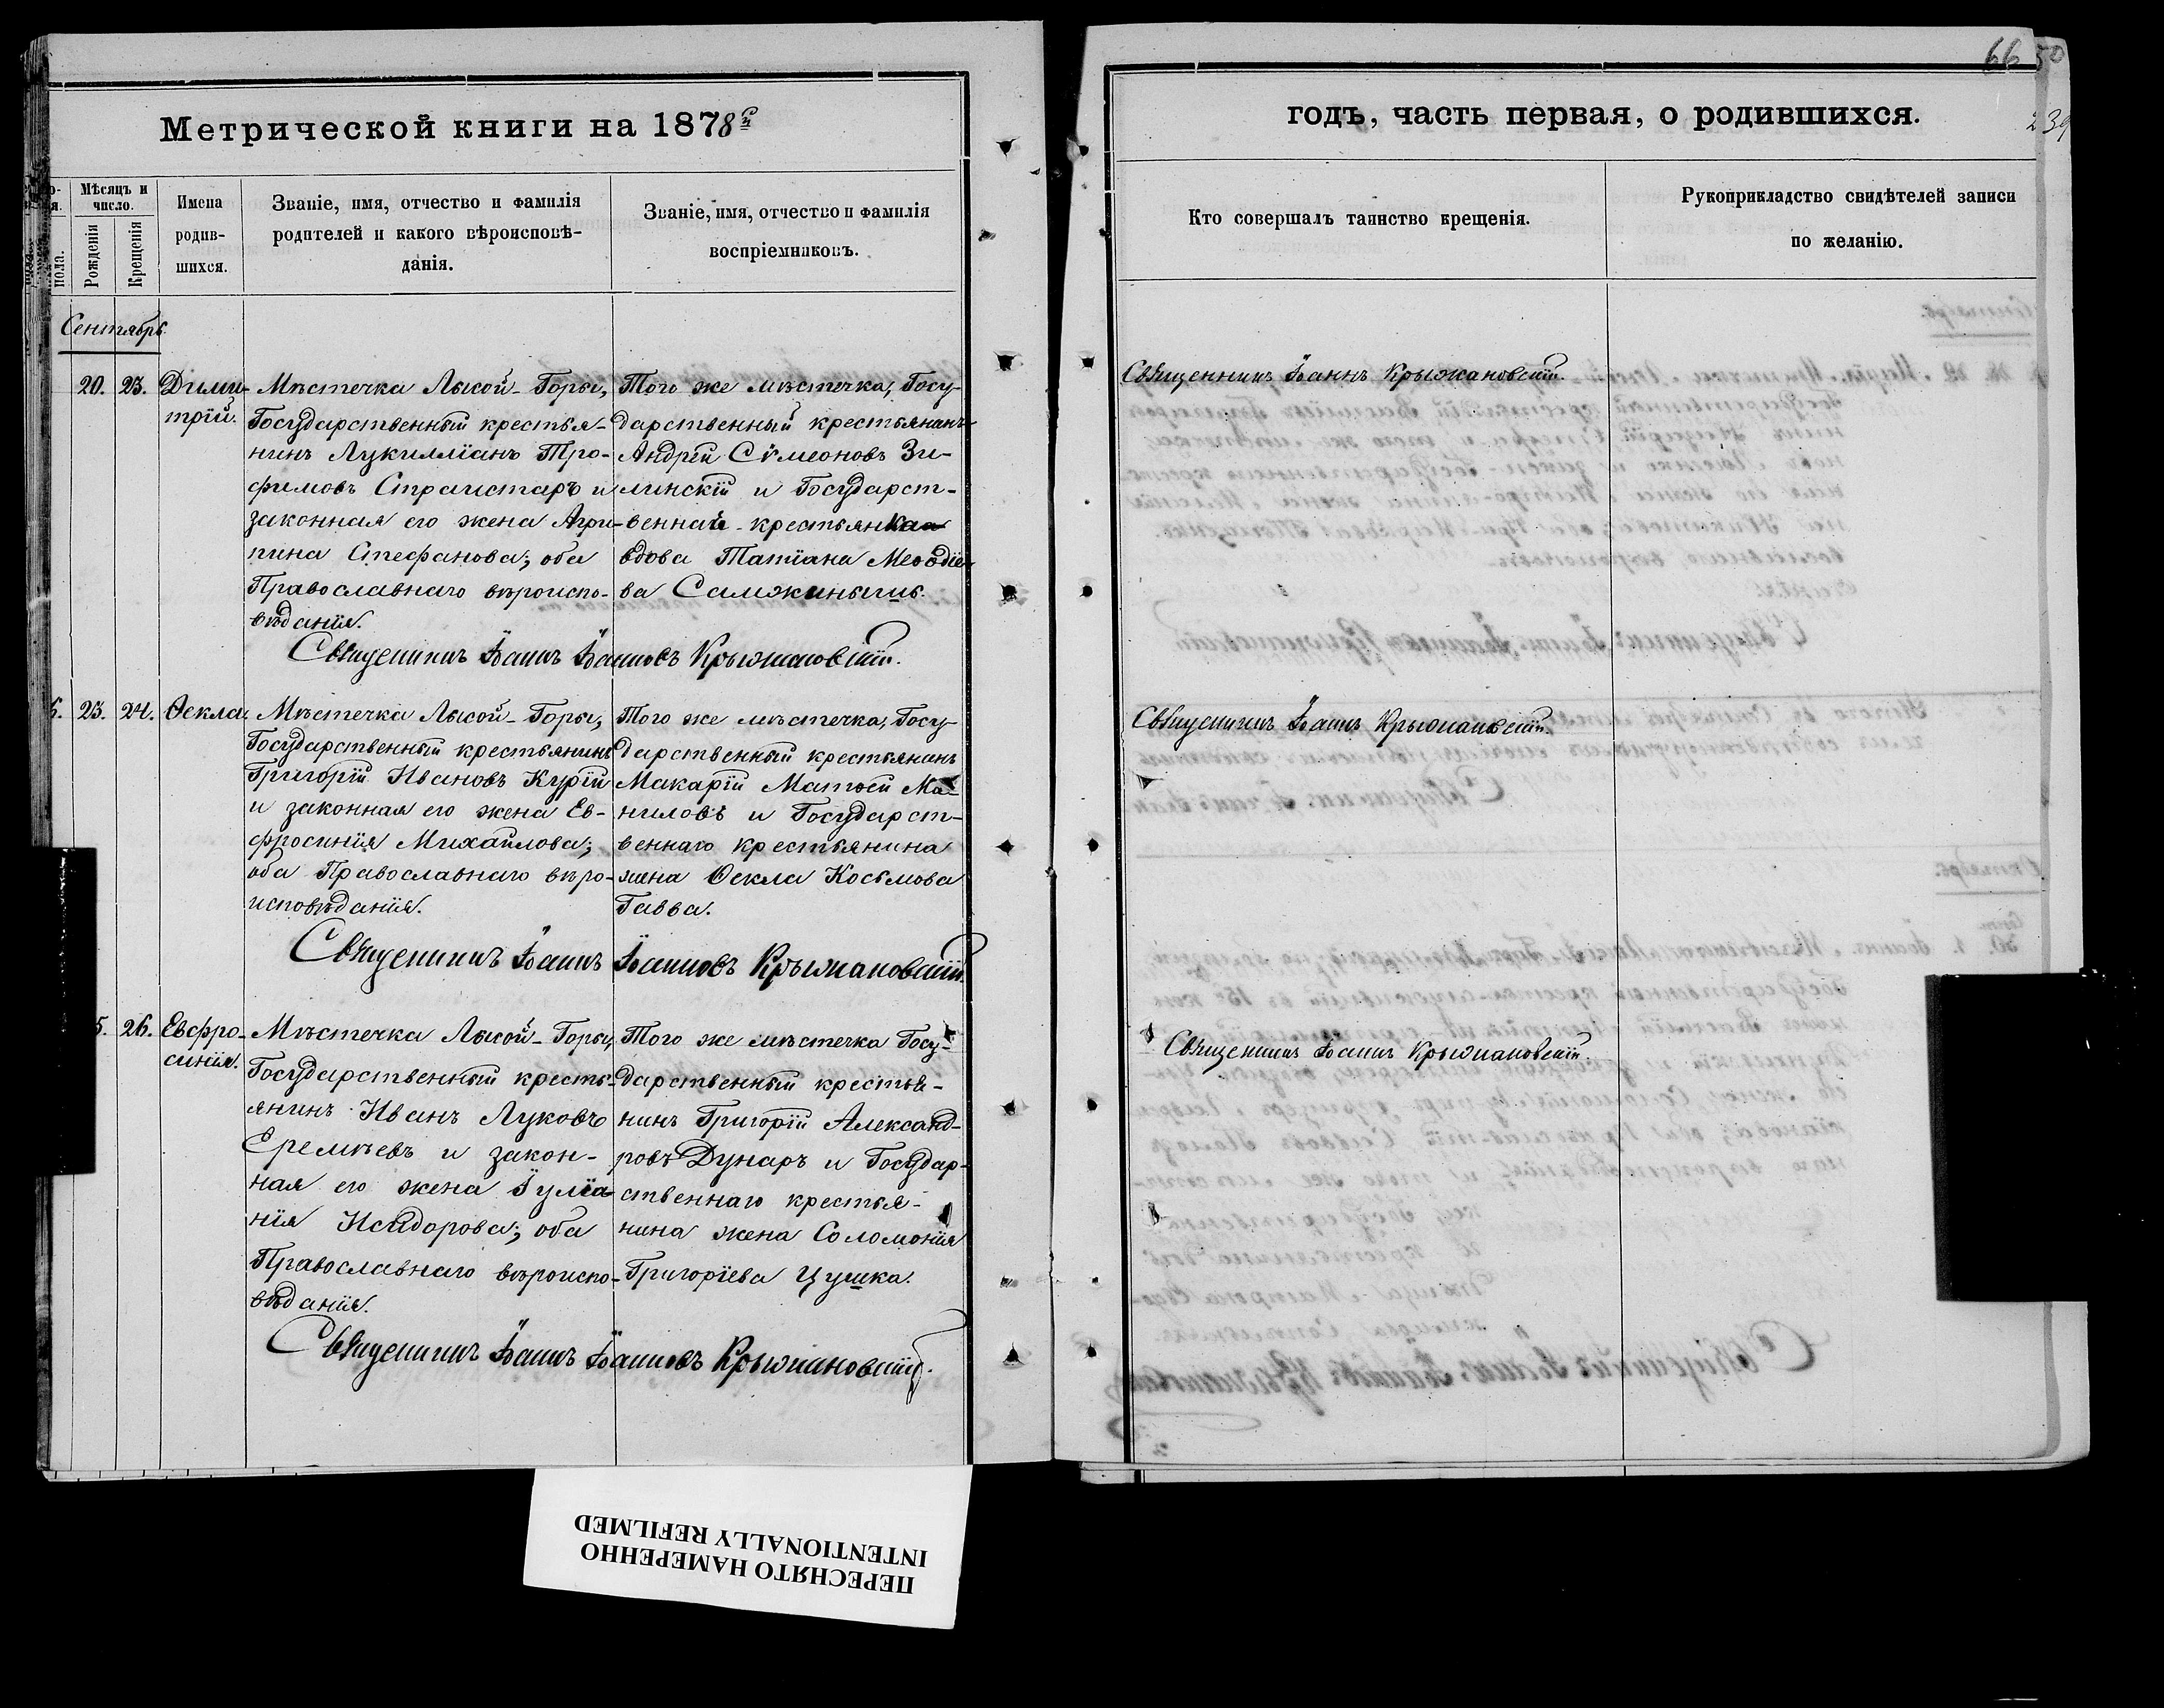 Метрической книги на 1878й
годъ, часть первая, о родившихся.
66 50
239
Мѣсяцъ и число.
Рожденія
Крещенія
пола.
Имена родив-
шихся.
Званіе, имя, отчество и фамилія
родителей и какого вѣроисповѣ-
данія.
Званіе, имя, отчество и фамилія
воспріемниковъ.
Кто совершалъ таинство крещенія.
Рукоприкладство свидѣтелей записи
по желанію.
Сентябрь
20. 23. Дими-
трій.
Мѣстечка Лысой-Горы,
Государственный крестья-
нинъ Лукилліанъ Тро-
фимовъ Страистаръ и
законная его жена Агри-
пина Стефанова; оба
Православнаго вѣроиспо-
вѣданія.
Того же мѣстечка, Госу-
дарственный крестьянинъ
Андрей Сѵмеоновъ Зи-
линскій и Государст-
венная крестьянка
вдова Татіана Меѳодіе-
ва Самжиныць.
Священникъ Іоаннъ Іоанновъ Крыжановскій.
Священникъ Іоаннъ Крыжановскій.
5. 23. 24. Ѳекла.
Мѣстечка Лысой-Горы,
Государственный крестьянинъ
Григорій Ивановъ Курій
и законная его жена Ев-
фросинія Михайлова;
оба Православнаго вѣро-
исповѣданія.
Того же мѣстечка, Госу-
дарственный крестьянинъ
Макарій Матѳей Ма-
ниловъ и Государст-
веннаго крестьянина
жена Ѳекла Косьмова
Гавва.
Священникъ Іоаннъ Іоанновъ Крыжановскій.
Священникъ Іоаннъ Крыжановскій.
5. 26. Евфро-
синія.
Мѣстечка Лысой-Горы,
Государственный кресть-
янинъ Иванъ Луковъ
Еремѣевъ и закон-
ная его жена Іуліа-
нія Исидорова; оба
Православнаго вѣроиспо-
вѣданія.
Того же мѣстечка Госу-
дарственный крестья-
нинъ Григорій Александ-
ровъ Дунаръ и Государ-
ственнаго крестья-
нина жена Соломонія
Григоріева Цушка.
Священникъ Іоаннъ Іоанновъ Крыжановскій.
Священникъ Іоаннъ Крыжановскій.
ПЕРЕСНЯТО НАМЕРЕННО
INTENTIONALLY REFILMED